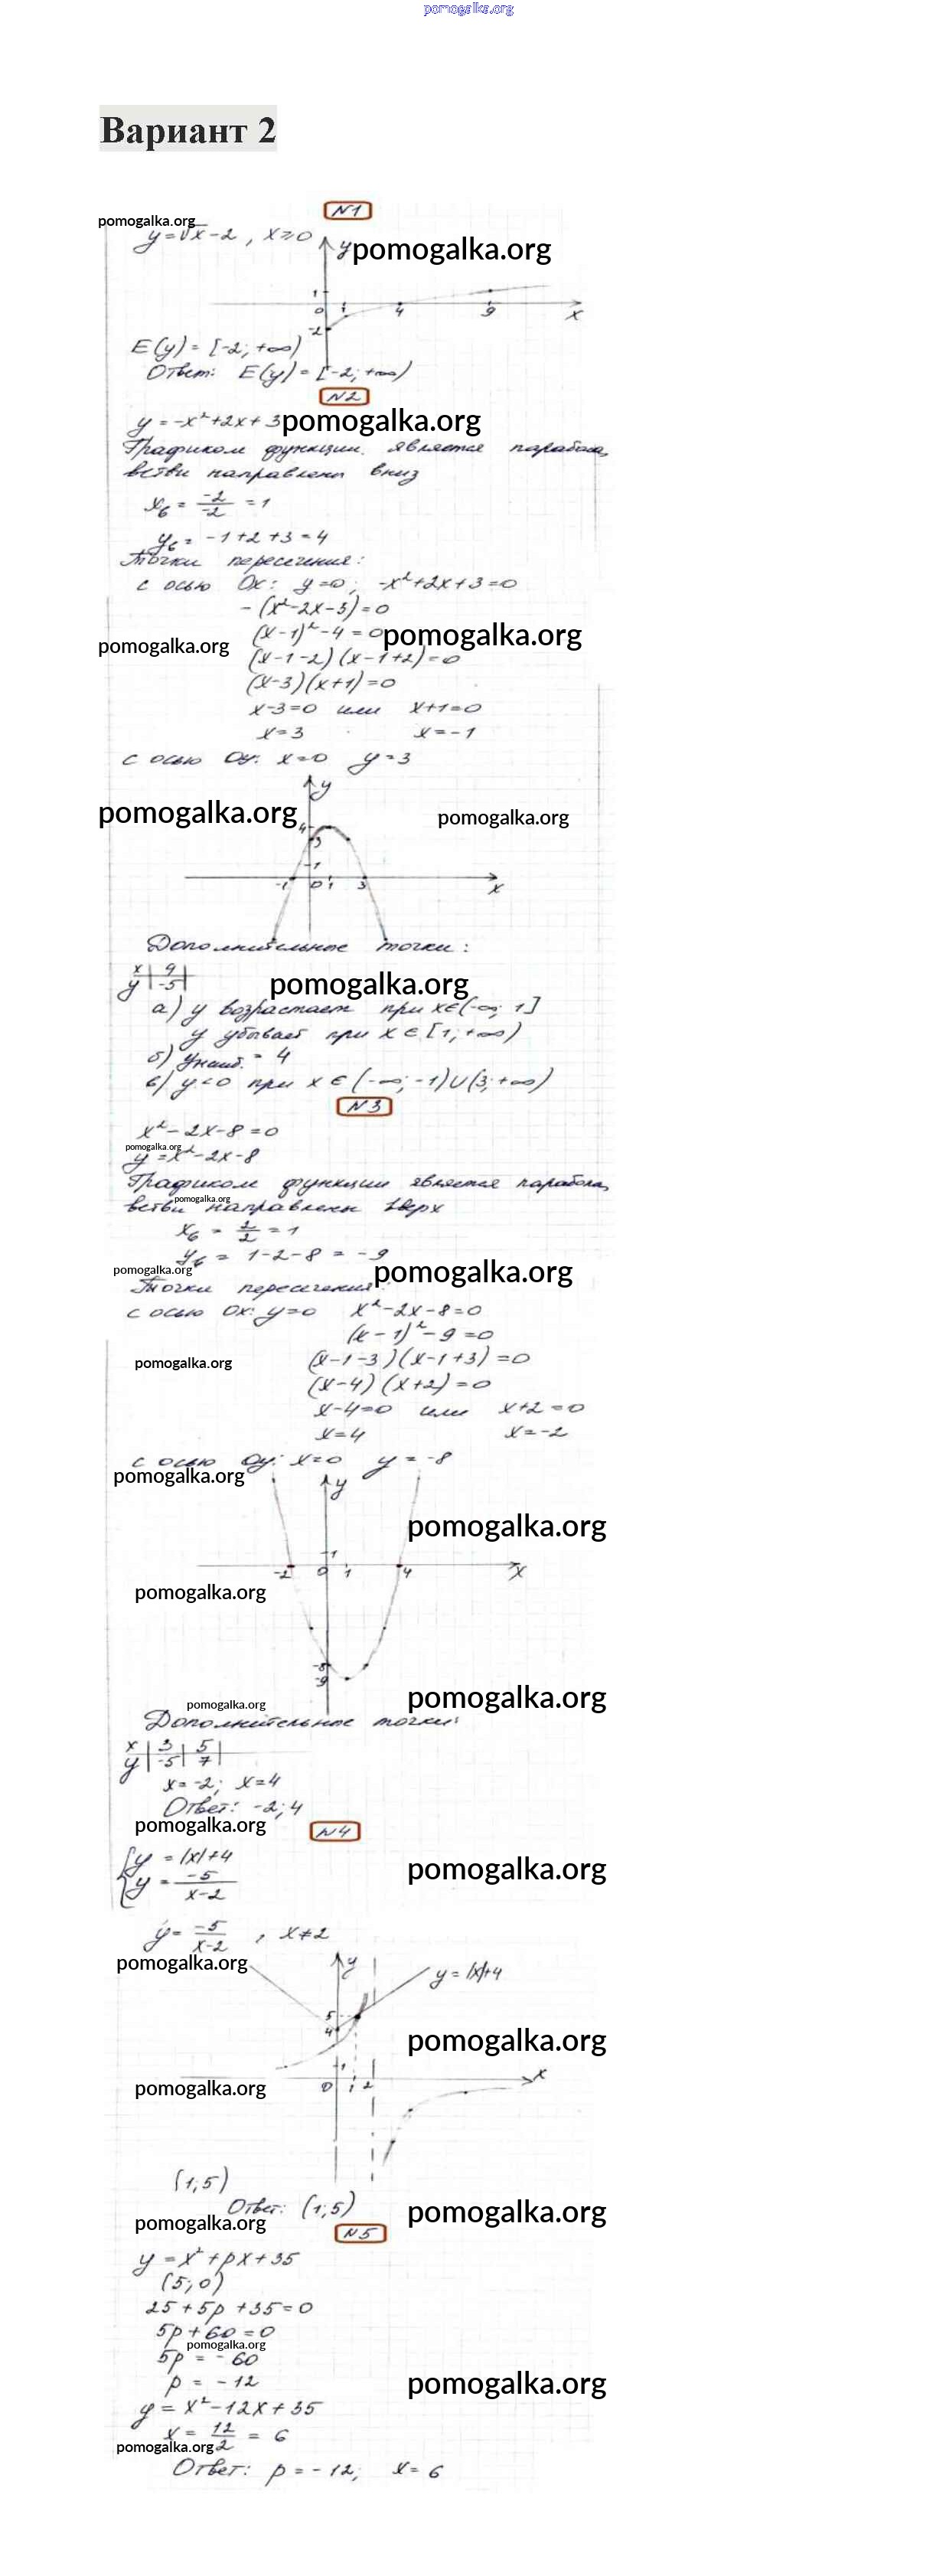 pomogalka.org
Вариант 2
N1
pomogalka.org
y = √x - 2 , x ≥ 0
y pomogalka.org
1
0 1 4 9 x
-2
E(y) = [-2; +∞)
Ответ: E(y) = [-2; +∞)
N2
y = -x² + 2x + 3 pomogalka.org
Графиком функции является парабола,
ветви направлены вниз
x₆ = -2/-2 = 1
y₆ = -1 + 2 + 3 = 4
Точки пересечения:
с осью Ox: y=0; -x²+2x+3=0
-(x²-2x-3)=0
(x-1)²-4=0 pomogalka.org
pomogalka.org
(x-1-2)(x-1+2)=0
(x-3)(x+1)=0
x-3=0 или x+1=0
x=3 x=-1
с осью Oy: x=0 y=3
y
pomogalka.org pomogalka.org
4
3
1
-1 0 1 3 x
Дополнительные точки:
x | 4 |
y | -5 |
pomogalka.org
а) y возрастает при x∈(-∞; 1]
y убывает при x∈[1; +∞)
б) yнаиб. = 4
в) y<0 при x∈(-∞; -1)∪(3; +∞)
N3
x²-2x-8=0
pomogalka.org
y=x²-2x-8
Графиком функции является парабола,
pomogalka.org
ветви направлены вверх
x₆ = 2/2 = 1
y₆ = 1-2-8 = -9
pomogalka.org pomogalka.org
Точки пересечения:
с осью Ox: y=0 x²-2x-8=0
(x-1)²-9=0
pomogalka.org
(x-1-3)(x-1+3)=0
(x-4)(x+2)=0
x-4=0 или x+2=0
x=4 x=-2
с осью Oy: x=0 y=-8
pomogalka.org
y
pomogalka.org
1
-2 0 1 4 x
pomogalka.org
-8
-9
pomogalka.org pomogalka.org
Дополнительные точки:
x | 3 | 5 |
y | -5 | 7 |
x=-2; x=4
Ответ: -2; 4
pomogalka.org
N4
y = |x|+4
y = -5/x-2
pomogalka.org
y = -5/x-2 , x≠2
pomogalka.org
y
y=|x|+4
5
4
pomogalka.org
1
0 1 2 x
pomogalka.org
(1;5)
Ответ: (1;5)
pomogalka.org
pomogalka.org
N5
y = x²+px+35
(5; 0)
25+5p+35=0
5p+60=0
pomogalka.org
5p = -60
p = -12
pomogalka.org
y = x²-12x+35
x = 12/2 = 6
pomogalka.org
Ответ: p=-12; x=6